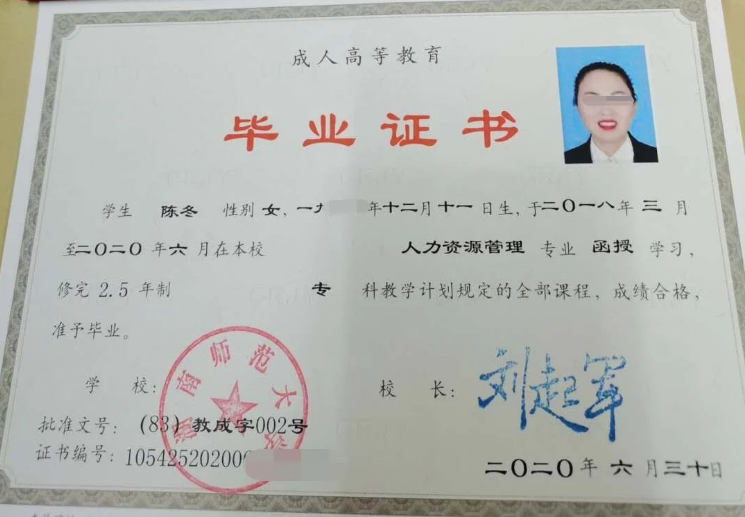 成人高等教育
毕业证书
学生 陈冬 性别 女，一九 年十二月十一日生，于二〇一八年 三 月
至二〇二〇年六月在本校 人力资源管理 专业 函授 学习，
修完 2.5 年制 专 科教学计划规定的全部课程，成绩合格，
准予毕业。
学 校： 校 长：
湖南师范大学
刘起军
批准文号：(83) 教成字002号
证书编号：105425202006
二〇二〇年 六 月三十日